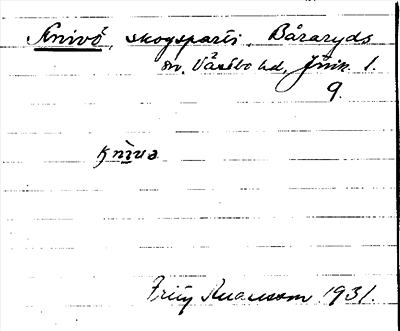 Knivö, skogsparti, Båraryds
sn, Västbo hd, Jönk. l.
9.
knìva
Fritz 1931.